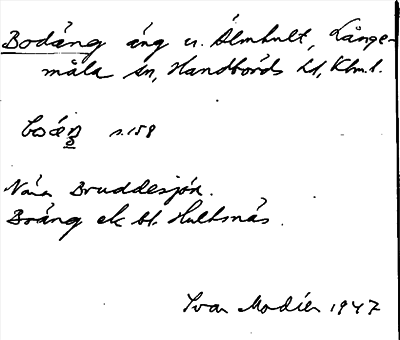 Bodäng äng u. Älmhult, Långe-
måla sn, Handbörds hd, Klm.l.
s.158
Nära Bruddesjön.
Boäng ek bl. Hultsnäs.
Ivar Modéer 1947